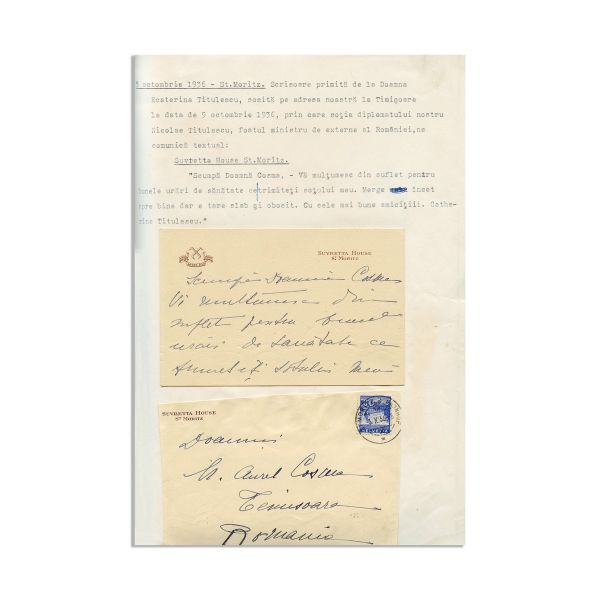 5 octombrie 1936 - St.Moritz. Scrisoare primită de la Doamna
Ecaterina Titulescu, sosită pe adresa noastră la Timişoara
la data de 9 octombrie 1936, prin care soţia diplomatului nostru
Nicolae Titulescu, fostul ministru de externe al României,ne
comunică textual:
Suvretta House St.Moritz.
"Scumpă Doamnă Cosma, - Vă mulţumesc din suflet pentru
bunele urări de sănătate ce trimiteţi soţului meu. Merge incet
spre bine dar e tare slab şi obosit. Cu cele mai bune amiciţii. Cathe-
rine Titulescu."
SUVRETTA HOUSE
ST MORITZ
Scumpă Doamnă Cosma
Vă multumesc din
suflet pentru bunele
urări de sănătate ce
trimeteţi sotului meu
SUVRETTA HOUSE
ST MORITZ
HELVETIA
Doamnei
M. Aurel Cosma
Temisoara
Romania